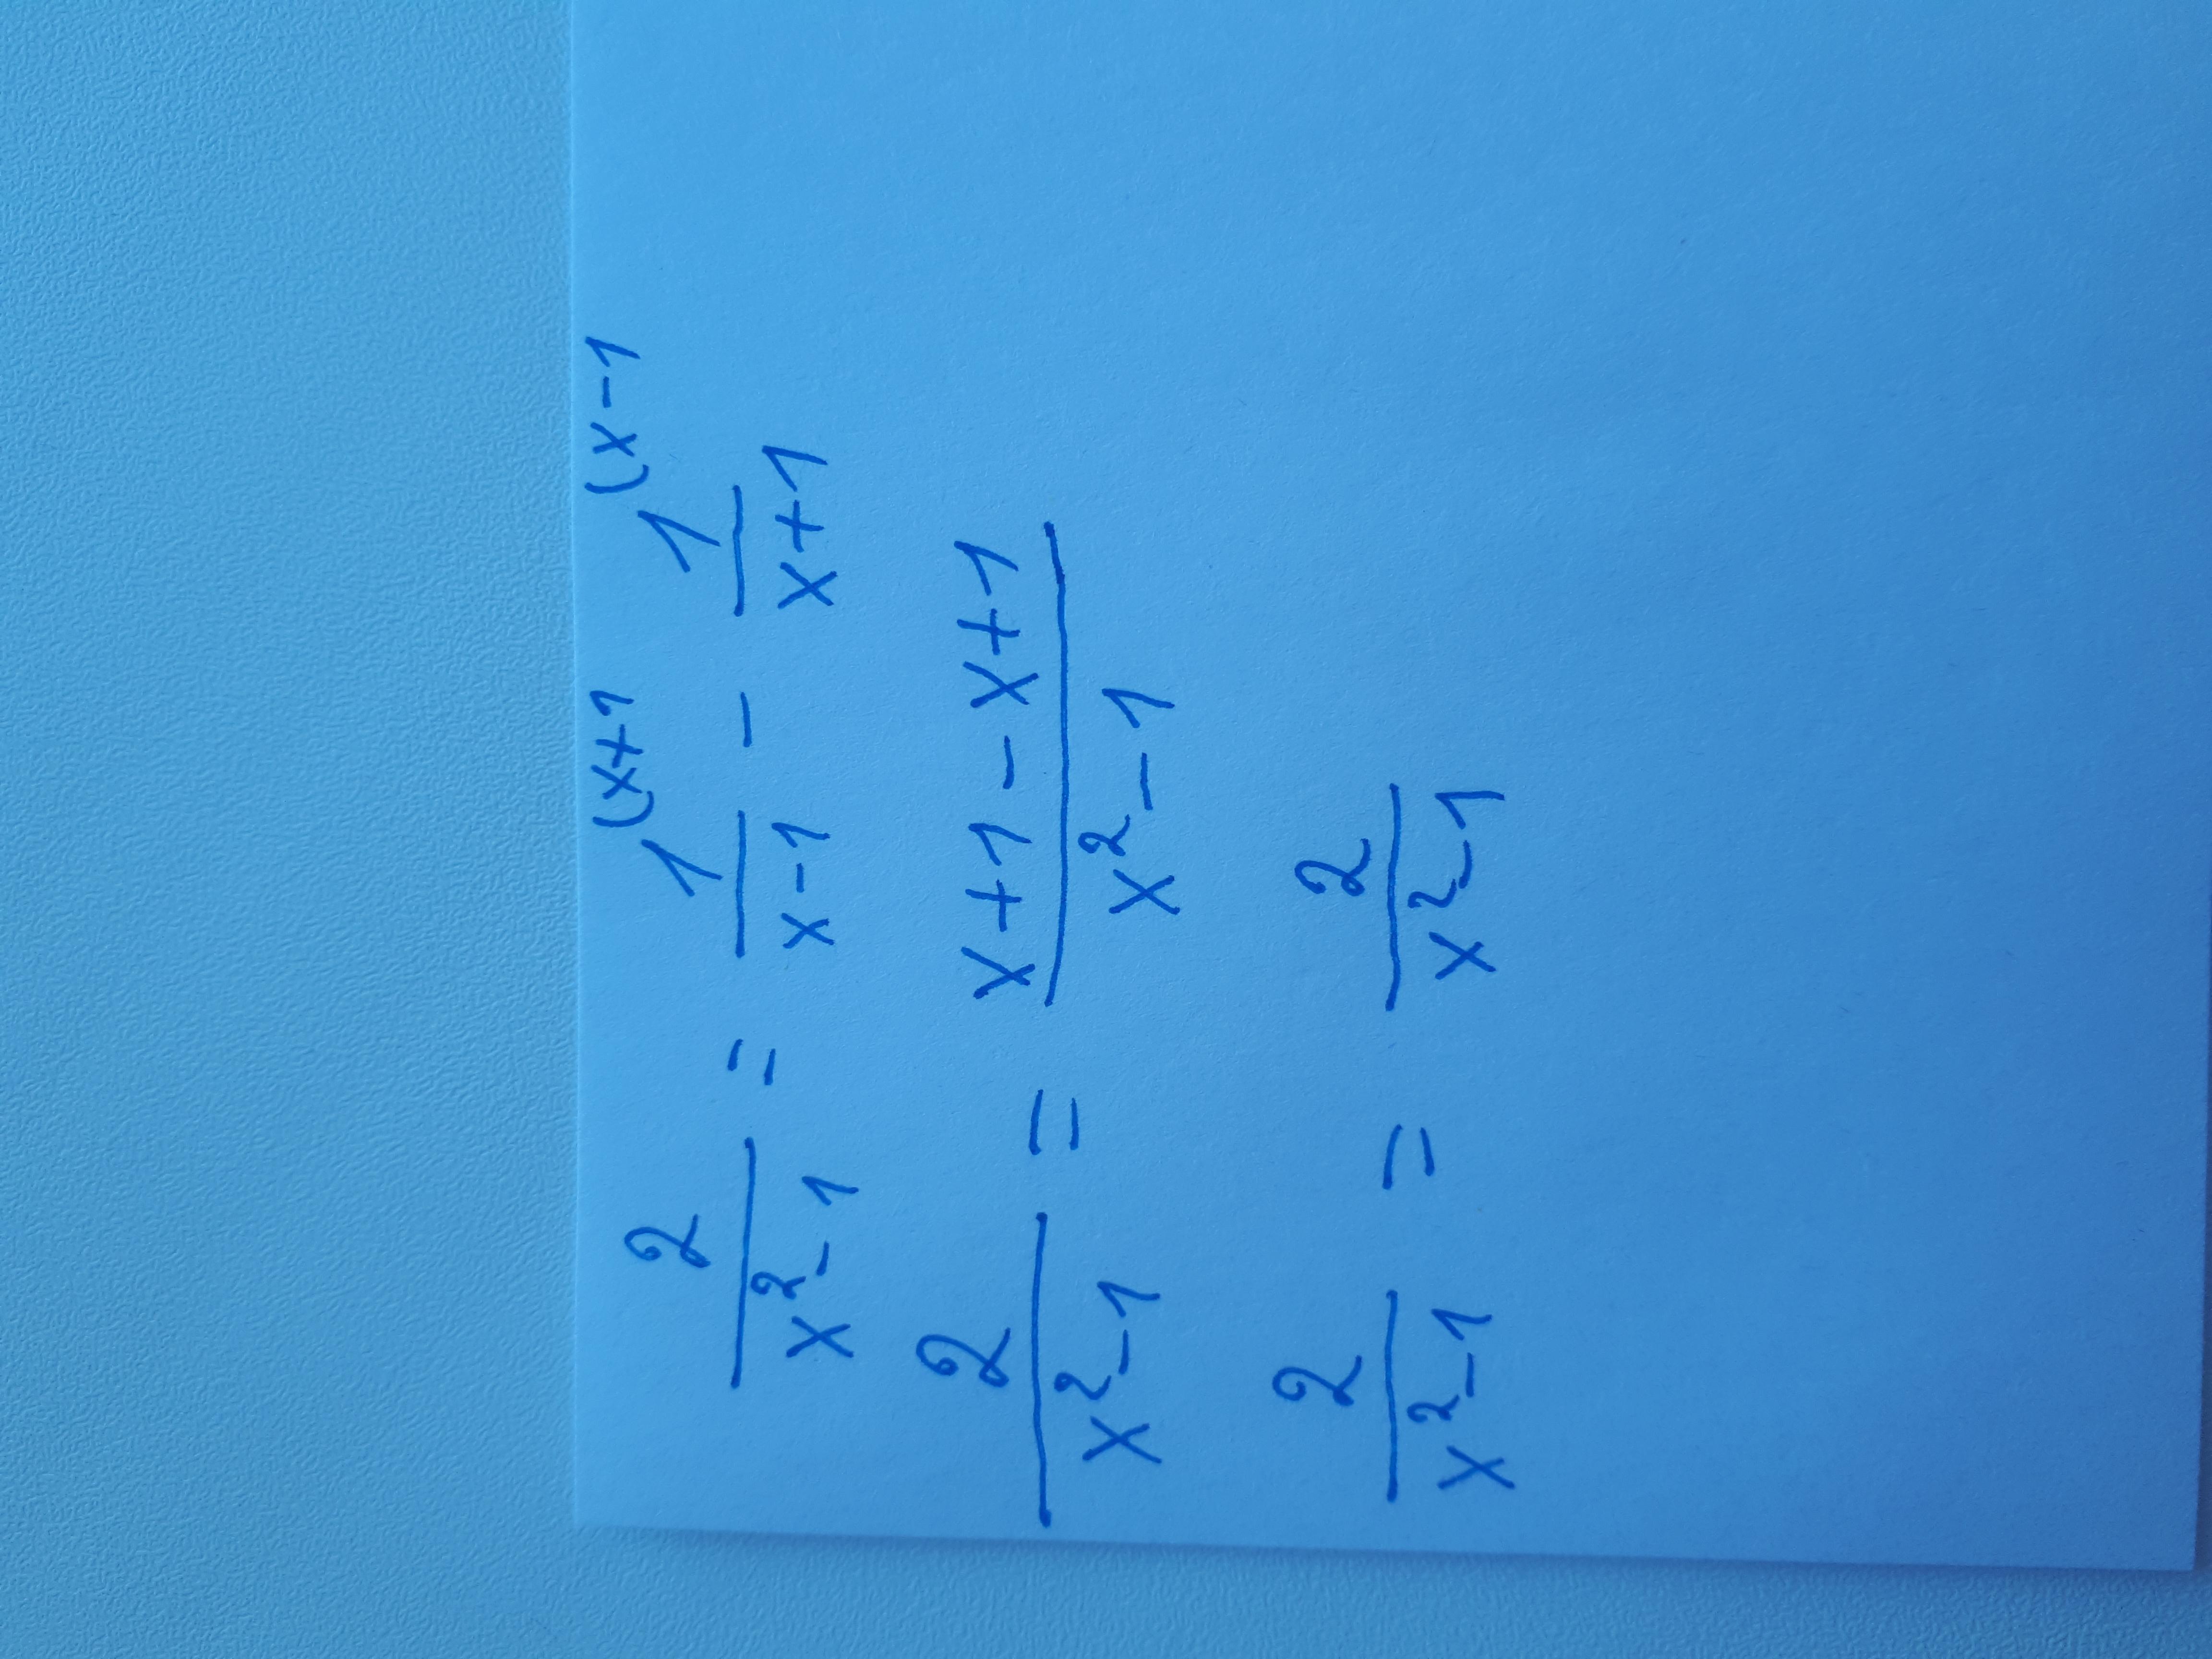 2/(x²-1) = 1/(x-1) (x+1 - 1/(x+1) (x-1
2/(x²-1) = (x+1-x+1)/(x²-1)
2/(x²-1) = 2/(x²-1)